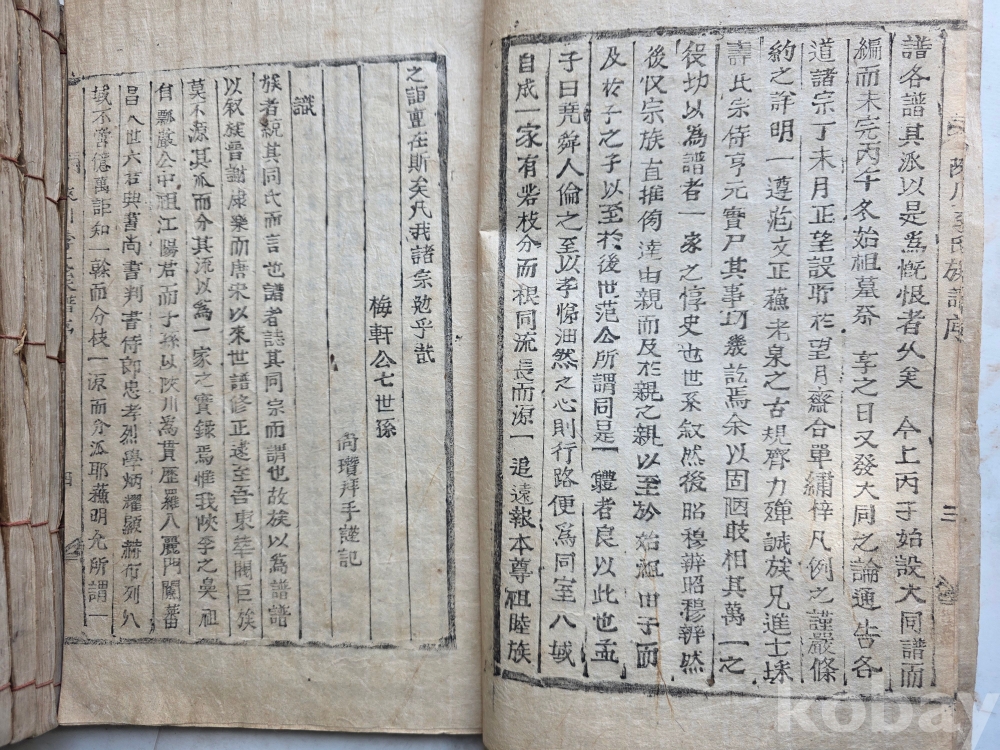 陜川李氏族譜序
三
譜各譜其派以是爲慨恨者久矣 今上丙子始設大同譜而
編而未完丙午冬始祖墓祭 享之日又發大同之論通告各
道諸宗丁未月正望設所於望月齋合單繡梓凡例之謹嚴條
約之詳明一遵范文正蘓老泉之古規齊力殫誠族兄進士琜
壽氏宗侍亨元實尸其事功幾訖焉余以固陋敢相其萬一之
役功以爲譜者一家之惇史也世系叙然後昭穆辨昭穆辨然
後収宗族直推傍達由親而及於親之親以至於始祖由子而
及於子之子以至於後世范公所謂同是一軆者良以此也孟
子曰堯舜人倫之至以孝悌油然之心則行路便爲同室八域
自成一家有若枝分而根同流長而源一追遠報本尊祖睦族
之誼亶在斯矣凡我諸宗勉乎哉
梅軒公七世孫
尙瓚拜手謹記
識
族者統其同氏而言也譜者誌其同宗而謂也故族以爲譜譜
以叙族晋謝康樂而唐宋以來世譜修正遠至吾東華閥巨族
莫不源其派而分其流以爲一家之實錄焉惟我陜李之鼻祖
自瓢巖公中祖江陽君而子孫以陜川爲貫歷羅八麗門闌蕃
昌八世六君典書尙書判書侍郞忠孝烈學炳耀顯赫布列八
域不啻億萬詎知一榦而分枝一源而分派耶蘓明允所謂一
四